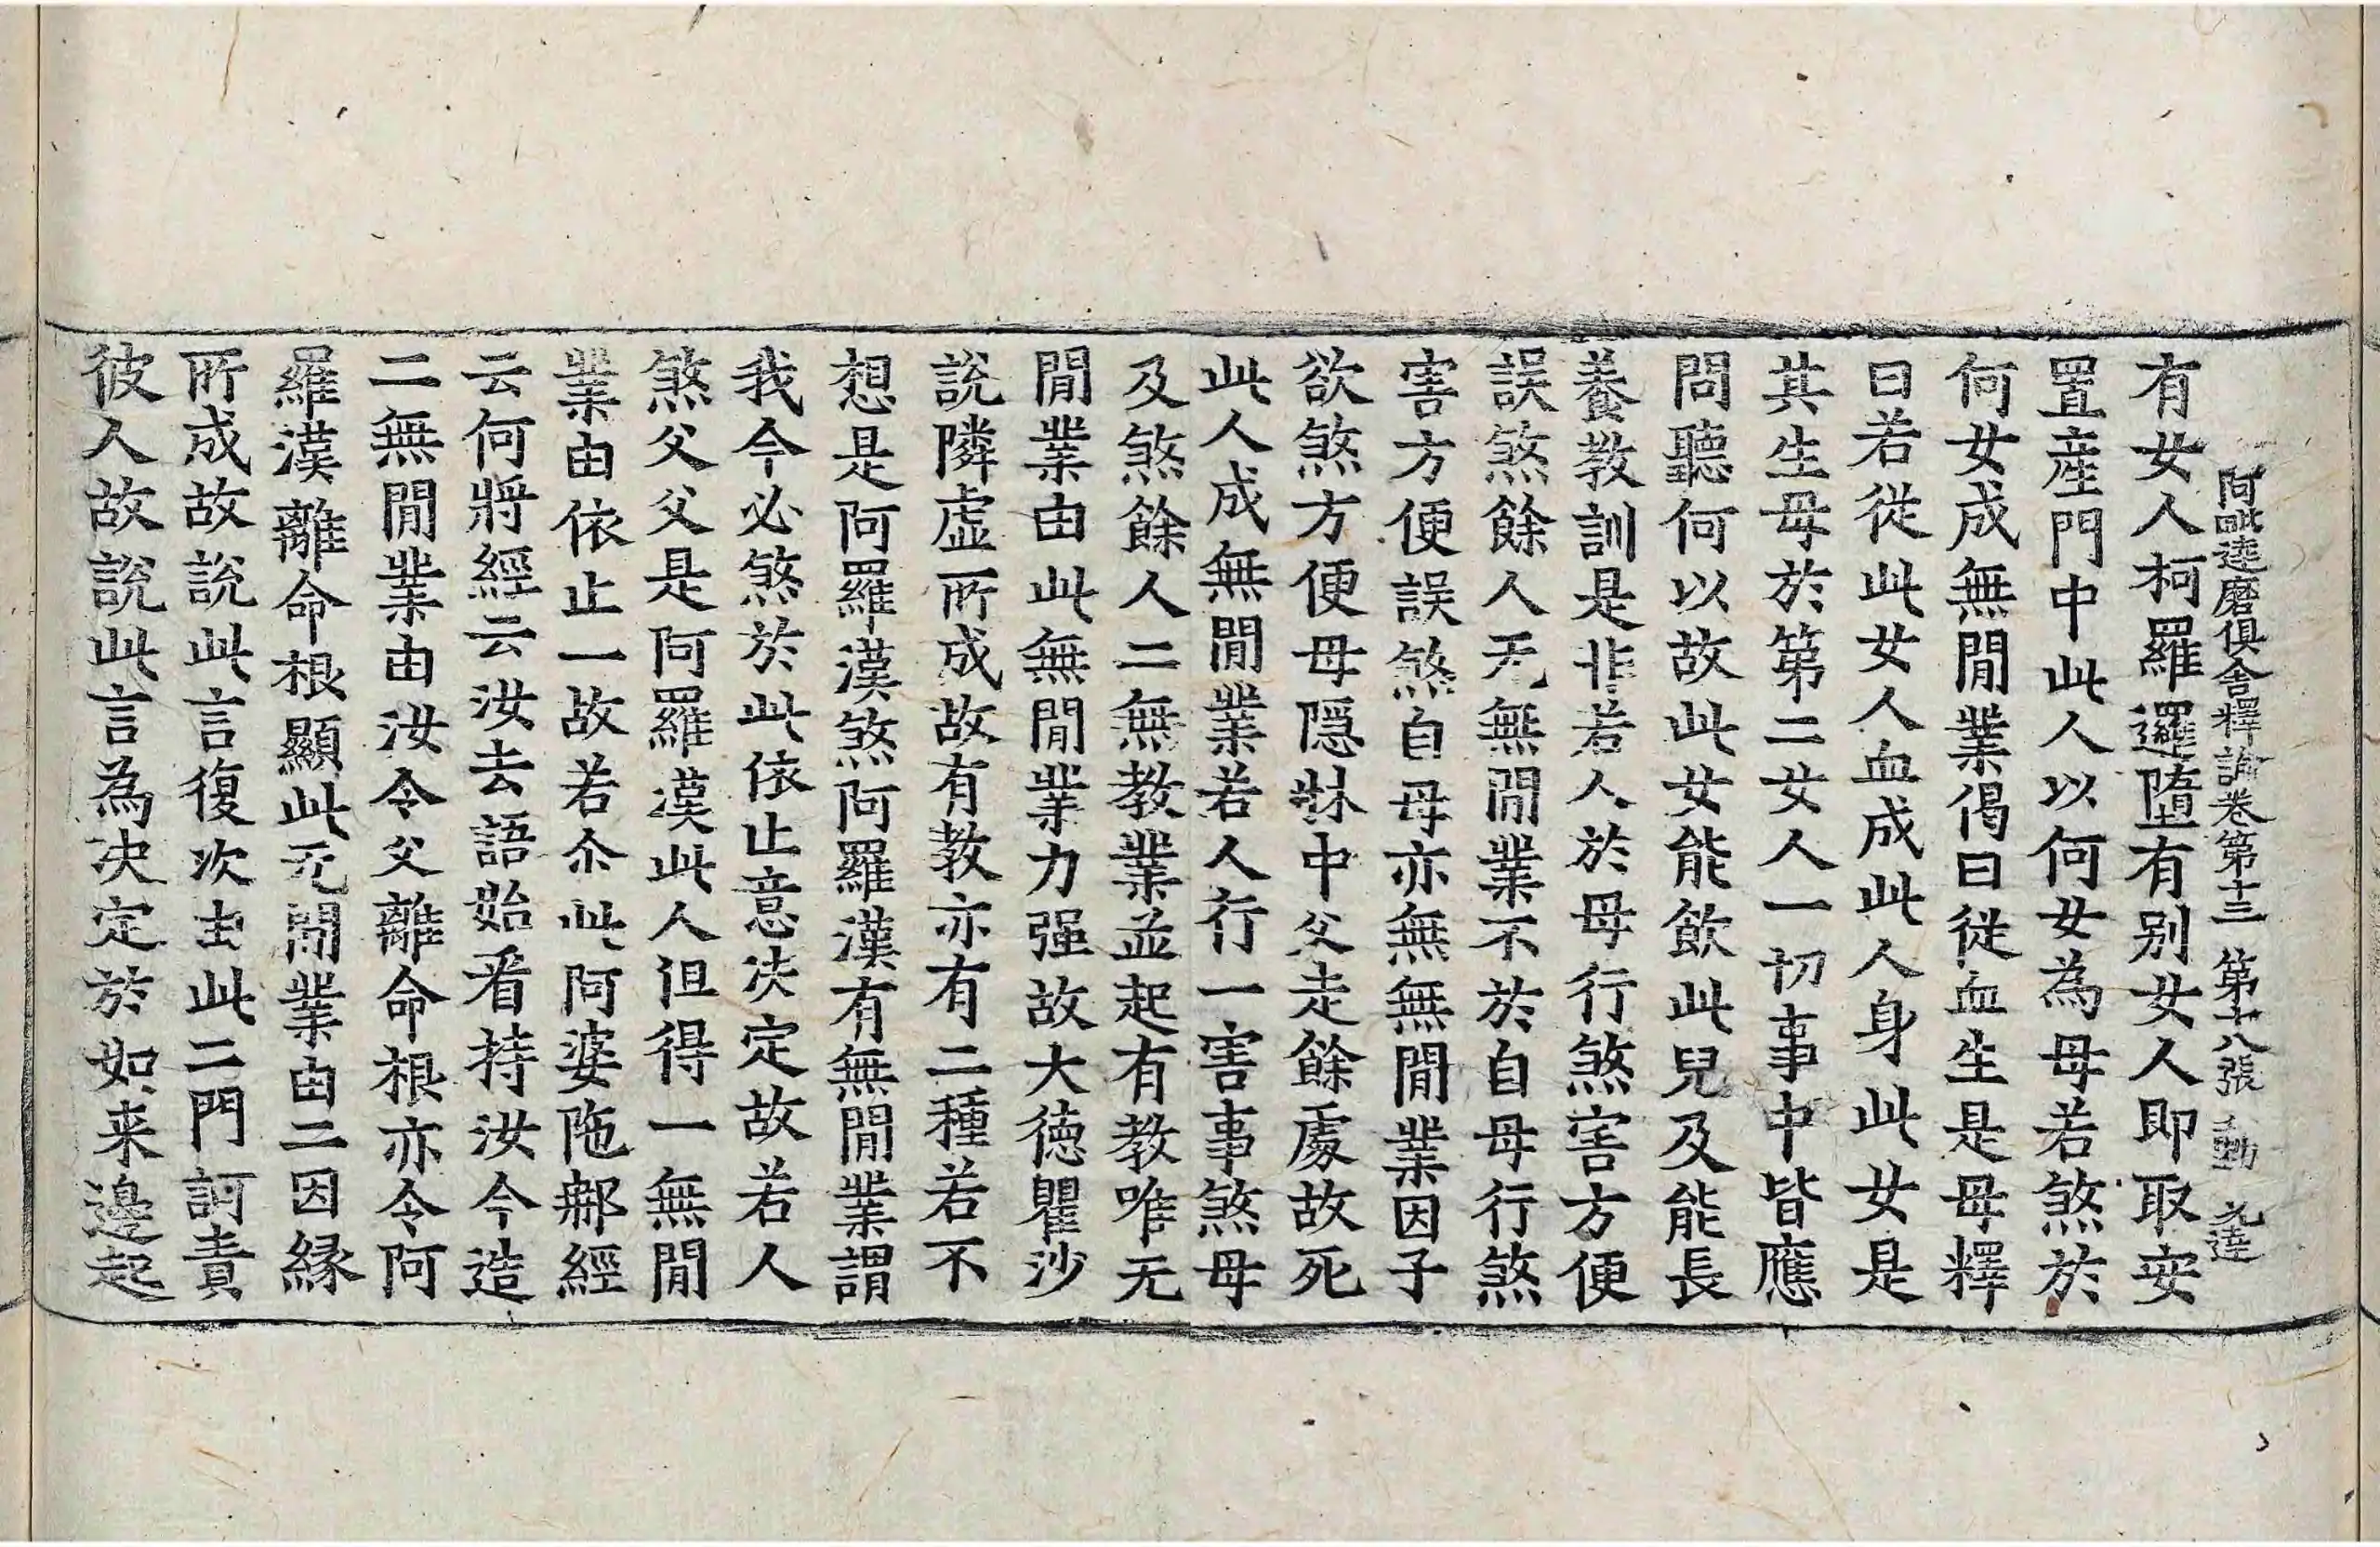 阿毗達磨俱舍釋論卷第十三 第十八張 動 元達
有女人柯羅邏墮有别女人即取安
置産門中此人以何女為母若煞於
何女成無閒業偈曰從血生是母釋
曰若從此女人血成此人身此女是
其生母於第二女人一切事中皆應
問聽何以故此女能飲此兒及能長
養教訓是非若人於母行煞害方便
誤煞餘人无無閒業不於自母行煞
害方便誤煞自母亦無無閒業因子
欲煞方便母隱牀中父走餘處故死
此人成無閒業若人行一害事煞母
及煞餘人二無教業並起有教唯无
閒業由此無閒業力强故大德瞿沙
說隣虛所成故有教亦有二種若不
想是阿羅漢煞阿羅漢有無閒業謂
我今必煞於此依止意决定故若人
煞父父是阿羅漢此人但得一無閒
業由依止一故若尒此阿婆陁郁經
云何將經云汝去語始看持汝今造
二無閒業由汝令父離命根亦令阿
羅漢離命根顯此无閒業由二因緣
所成故說此言復次由此二門訶責
彼人故說此言為决定於如来邊起